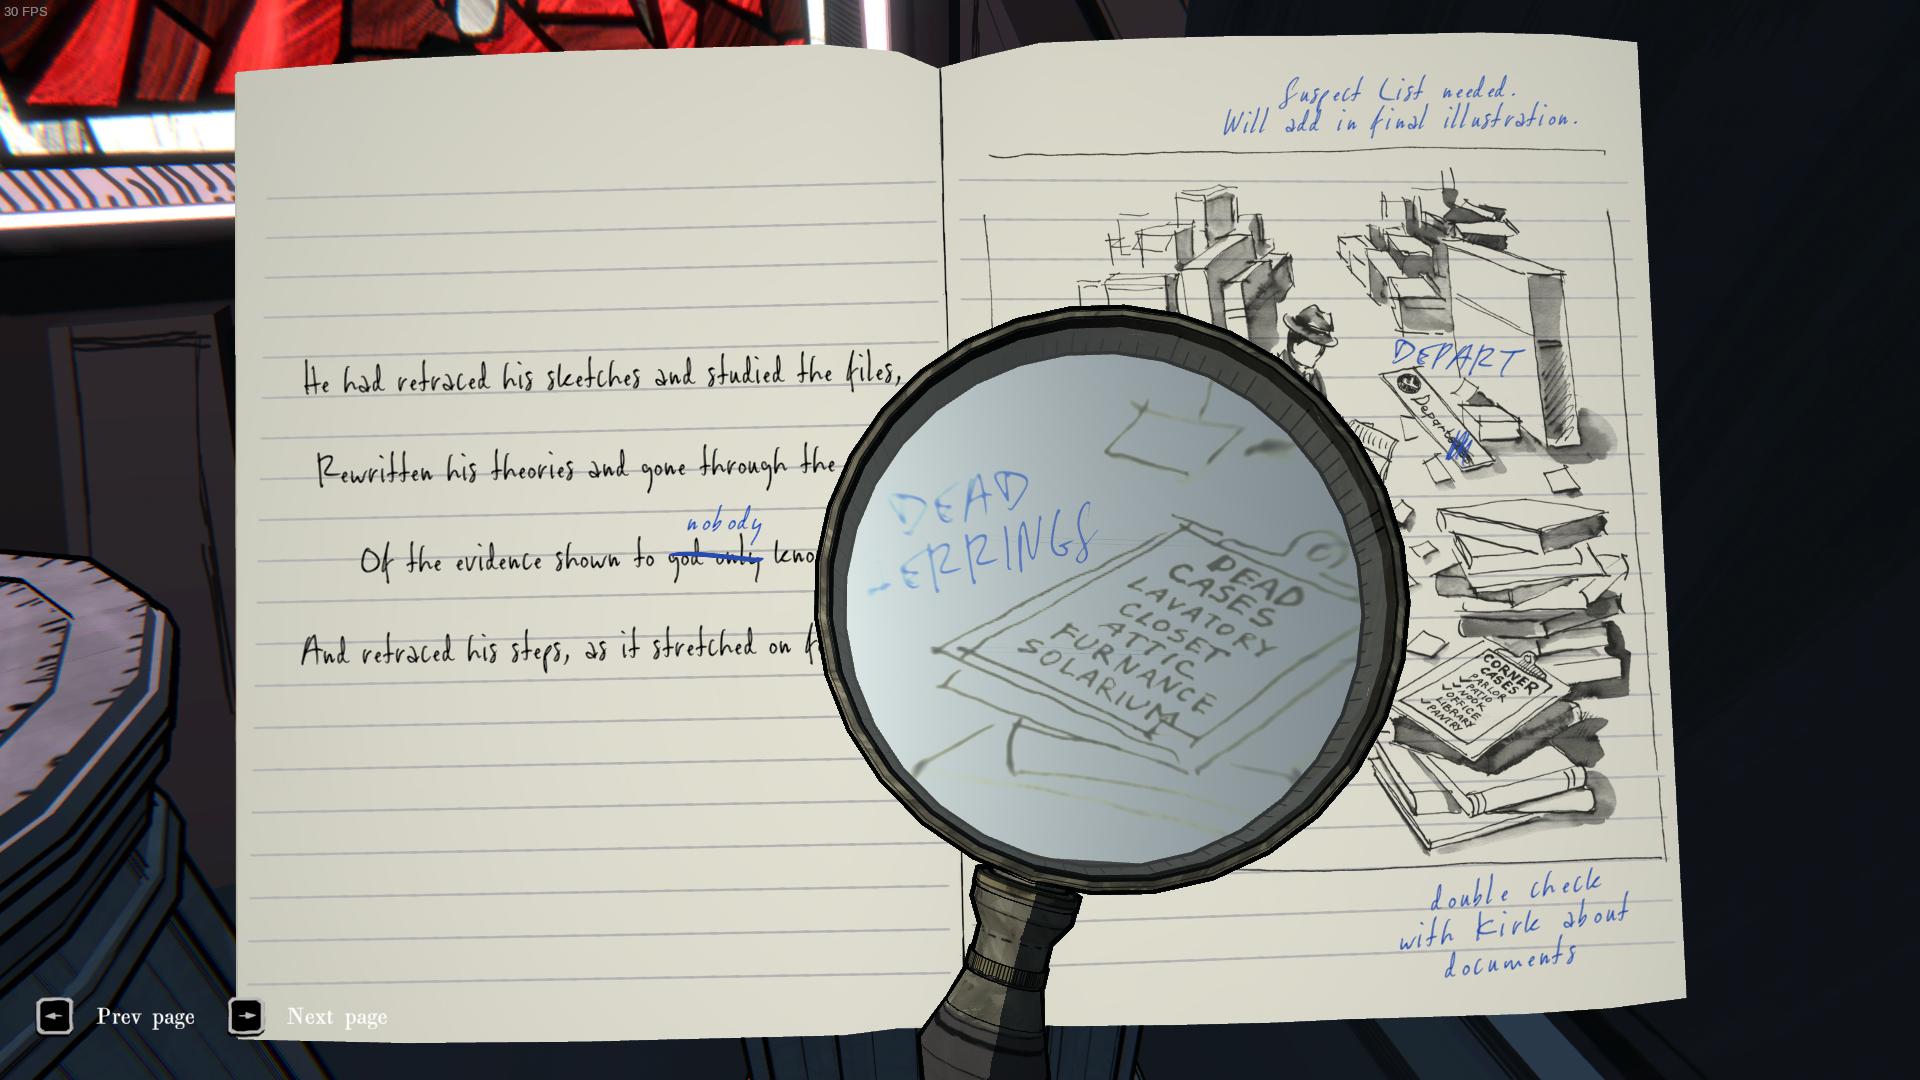 30 FPS
He had retraced his sketches and studied the files,
Rewritten his theories and gone through the
nobody
Of the evidence shown to god only kno
And retraced his steps, as it stretched on f
Suspect List needed.
Will add in final illustration.
DEPART
Depart
DEAD
-ERRINGS
DEAD
CASES
LAVATORY
CLOSET
ATTIC
FURNANCE
SOLARIUM
CORNER
CASES
PARLOR
PATIO
NOOK
OFFICE
LIBRARY
PANTRY
double check
with Kirk about
documents
Prev page
Next page